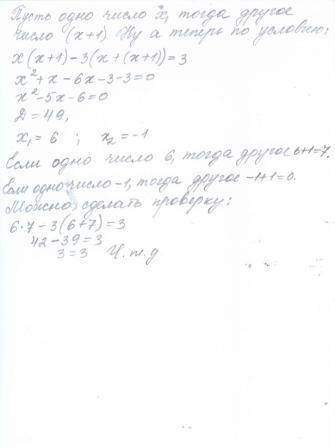 Пусть одно число x, тогда другое
число (x+1). Ну а теперь по условию:
x(x+1)-3(x+(x+1))=3
x²+x-6x-3-3=0
x²-5x-6=0
Д=49,
x₁=6 ; x₂=-1
Если одно число 6, тогда другое 6+1=7.
Если одно число -1, тогда другое -1+1=0.
Можно сделать проверку:
6·7-3(6+7)=3
42-39=3
3=3 Ч.т.д